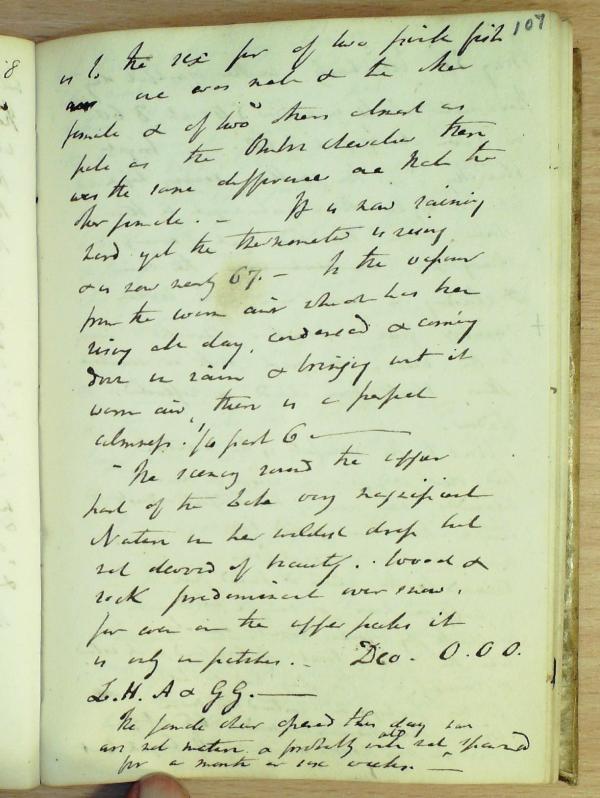 107
is to the sex for of two pink fish
one was male & the other
female & of two others almost as
pale as the Umbla chevalier there
was the same difference one male the
other female. — It is now raining
hard yet the thermometer is rising
& is now nearly 67. — Is the vapour
from the warm air which has been
rising all day, condensed & coming
down in rain & bringing with it
warm air, there is a perfect
calmness. 1/4 past 6 —
The scenery round the upper
part of the Lake very magnificent
Nature in her wildest dress but
not devoid of beauty. wood &
rock predominant over snow.
for even on the upper peaks it
is only in patches. — Deo. O.O.O.
L.H. A & GG. —
The female char opened this day
are not mature & probably will not spawn
for a month or six weeks. —